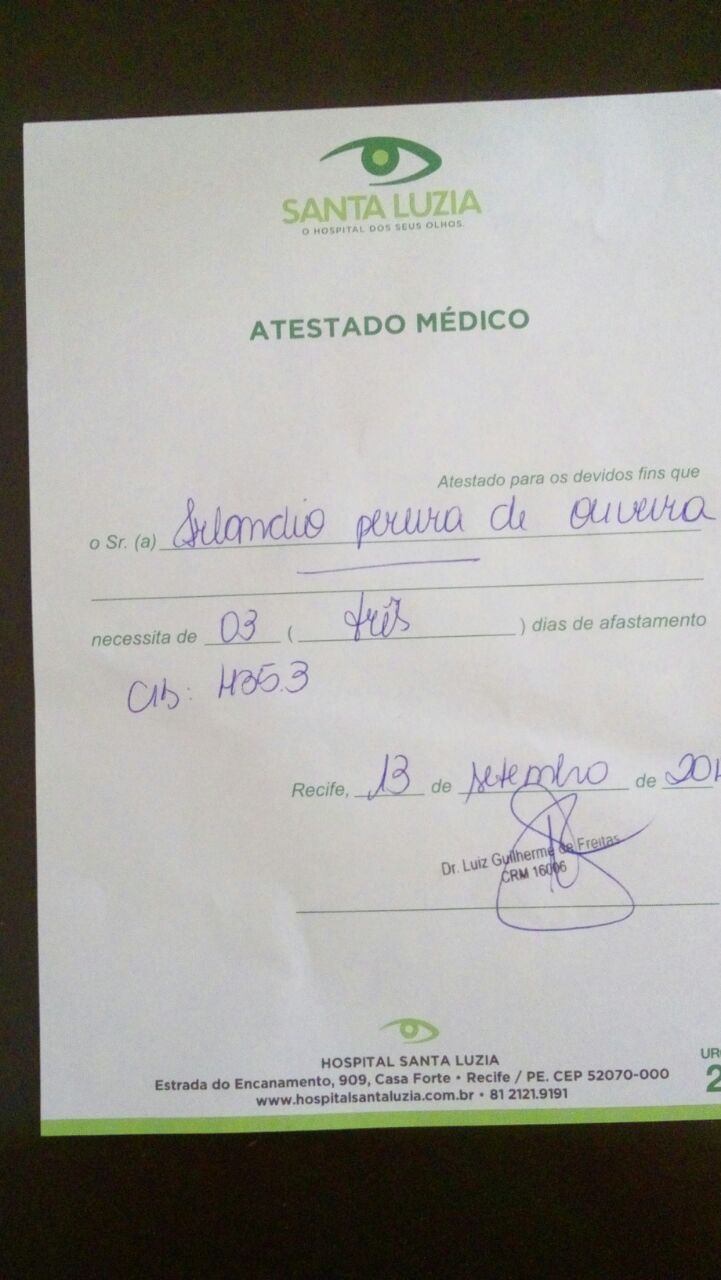 SANTA LUZIA
O HOSPITAL DOS SEUS OLHOS.
ATESTADO MÉDICO
Atestado para os devidos fins que
o Sr. (a) pereira de oliveira
necessita de 03 ( três ) dias de afastamento
CID: H35.3
Recife, 13 de setembro de
Dr. Luiz Guilherme de Freitas
CRM 16006
HOSPITAL SANTA LUZIA
Estrada do Encanamento, 909, Casa Forte • Recife / PE. CEP 52070-000
www.hospitalsantaluzia.com.br • 81 2121.9191